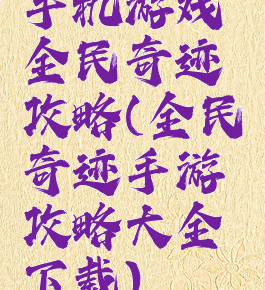 手机游戏
全民奇迹
攻略(全民
奇迹手游
攻略大全
下载)